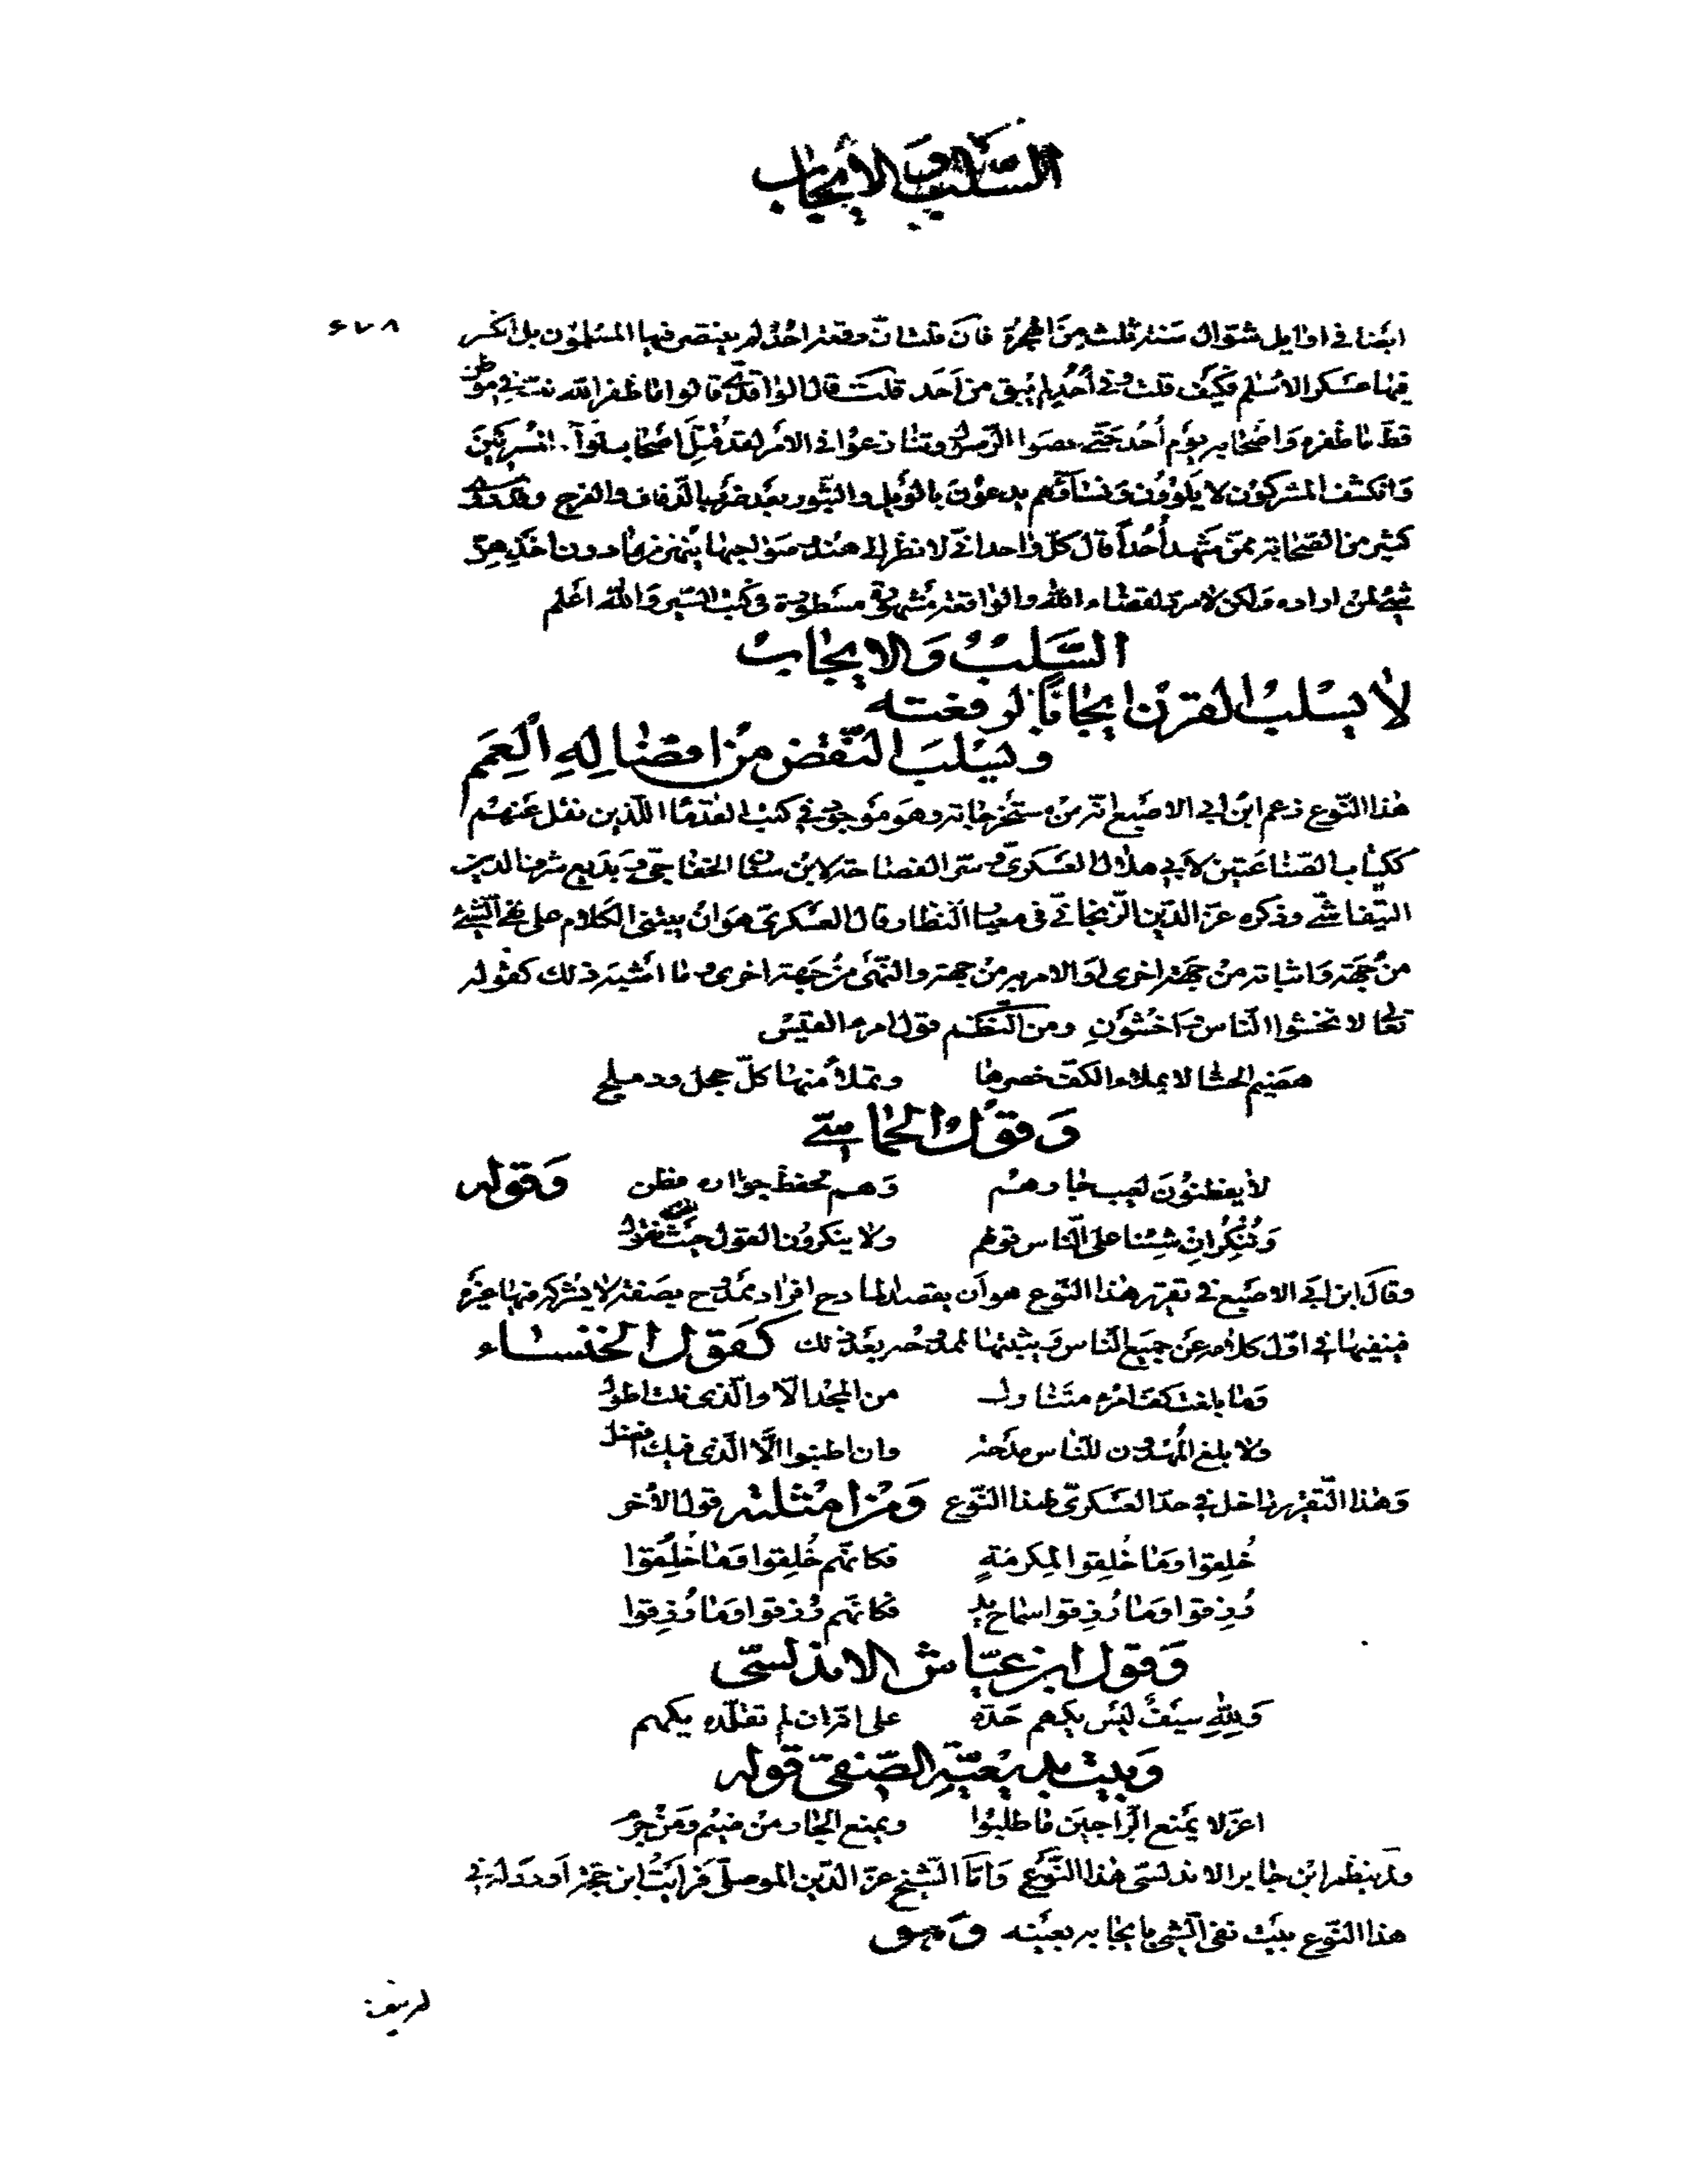 السلب والايجاب
ايضا في اوايل شوال سنة ثلث من الهجرة فان قلت ان وقعة احد لم ينتصر فيها المسلمون بل انكسر ٤٧٨
فيها عسكر الاسلام فكيف قلت وفي أحد لم يبق من أحد قلت قال الواقدي قالوا ما ظفر الله نبيه في موطن
قط ما ظفره واصحابه يوم أحد حتى عصوا الرسول وتنازعوا في الامر لقد قتل اصحاب لوآء المشركين
وانكشف المشركون لا يلوون ونسآؤهم يدعون بالويل والثبور بعد ضربهم بالدفاف والفرح وقد روى
كثير من الصحابة ممن شهد أحداً قال كل واحد اني لانظر الى هند وصواحبها منهزمات ما دون اخذهن
شئ لمن اراده ولكن لا مرد لقضاء الله والواقعة مشهورة مسطورة في كتب السير والله اعلم
السلب والايجاب
لا يسلب القرن ايجابا لرفعته
ويسلب النقص من افضاله العمم
هذا النوع زعم ابن ابي الاصبع انه من مستخرجاته وهو موجود في كتب القدماء الذين نقل عنهم
ككتاب الصناعتين لابي هلال العسكري وسر الفصاحة لابن سنان الخفاجي وبديع شرف الدين
التيفاشي وذكره عز الدين الزنجاني في معيار النظار وقال العسكري هو ان يبنى الكلام على نفي الشئ
من جهة واثباته من جهة اخرى او الامر به من جهة والنهى من جهة اخرى وما اشبه ذلك كقوله
تعالى لا تخشوا الناس واخشون ومن النظم قول امرء القيس
هضيم الحشا لا يملاء الكف خصرها وتملأ منها كل حجل ودملج
وقول الحماسي
لا يفطنون لعيب جارهم وهم لحفظ جواره فطن وقوله
وننكر ان شئنا على الناس قولهم ولا ينكرون القول حين نقول
وقال ابن ابي الاصبع في تقرير هذا النوع هو أن يقصد المادح افراد ممدوح بصفة لا يشركه فيها غيره
فينفيها في اول كلامه عن جميع الناس ويثبتها لممدوحه بعد ذلك كقول الخنساء
وما بلغت كف امرء متناول من المجد الا والذى نلت اطول
ولا بلغ المهدون للناس مدحة وان اطنبوا الا الذى فيك افضل
وهذا التقرير داخل في حد العسكري لهذا النوع ومن امثلته قول الآخر
خُلِقوا وما خُلِقوا لمكرمةٍ فكانهم خُلِقوا وما خُلِقوا
رُزِقوا وما رُزِقوا سماح يد فكانهم رُزقوا وما رُزِقوا
وقول ابن عياش الاندلسي
ولله سيف ليس يكهم حده على اقران لم تقلده يكهم
وبيت بديعية الصفي قوله
اعز لا يمنع الراجين ما طلبوا ويمنع الجار من ضيم ومن حرم
ولم ينظم ابن جابر الاندلسي هذا النوع وامّا الشيخ عز الدين الموصلي فرأيت ابن حجة اورد له في
هذا النوع بيت نفي الشئ بايجابه بعينه وهو